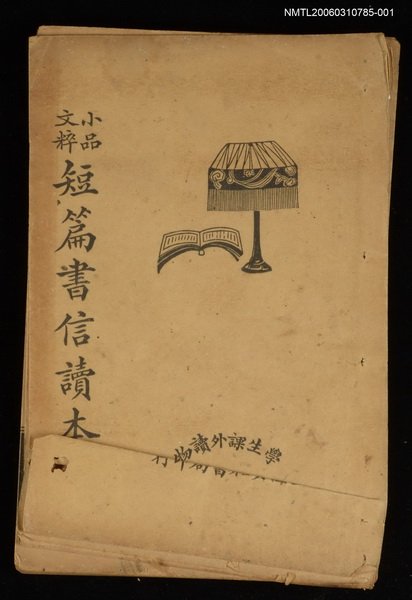 NMTL20060310785-001
小品
文粹
短篇書信讀本
學生課外讀物